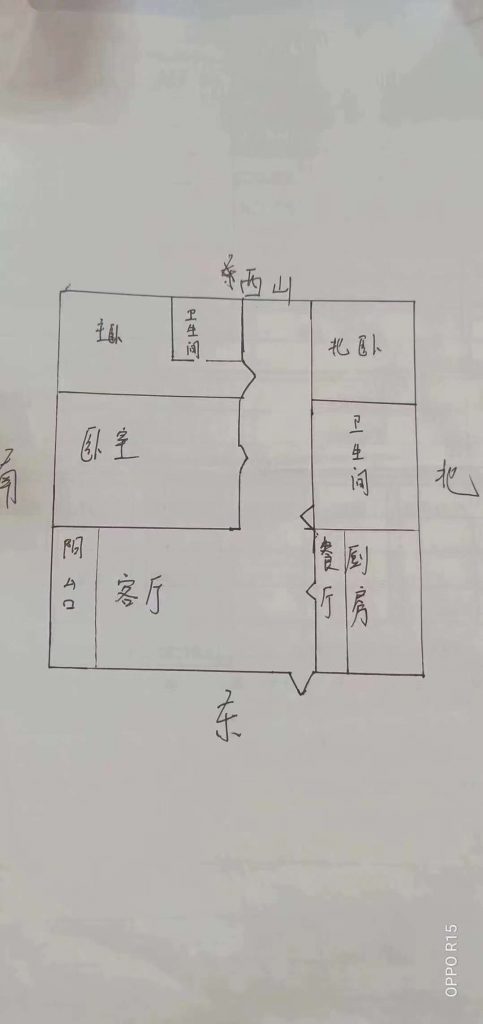 西山
主卧
卫生间
北卧
卧室
卫生间
南
北
阳台
客厅
餐厅
厨房
东
OPPO R15